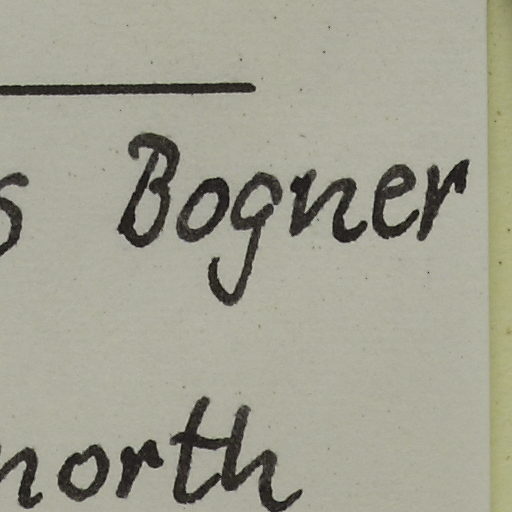 s Bogner
north